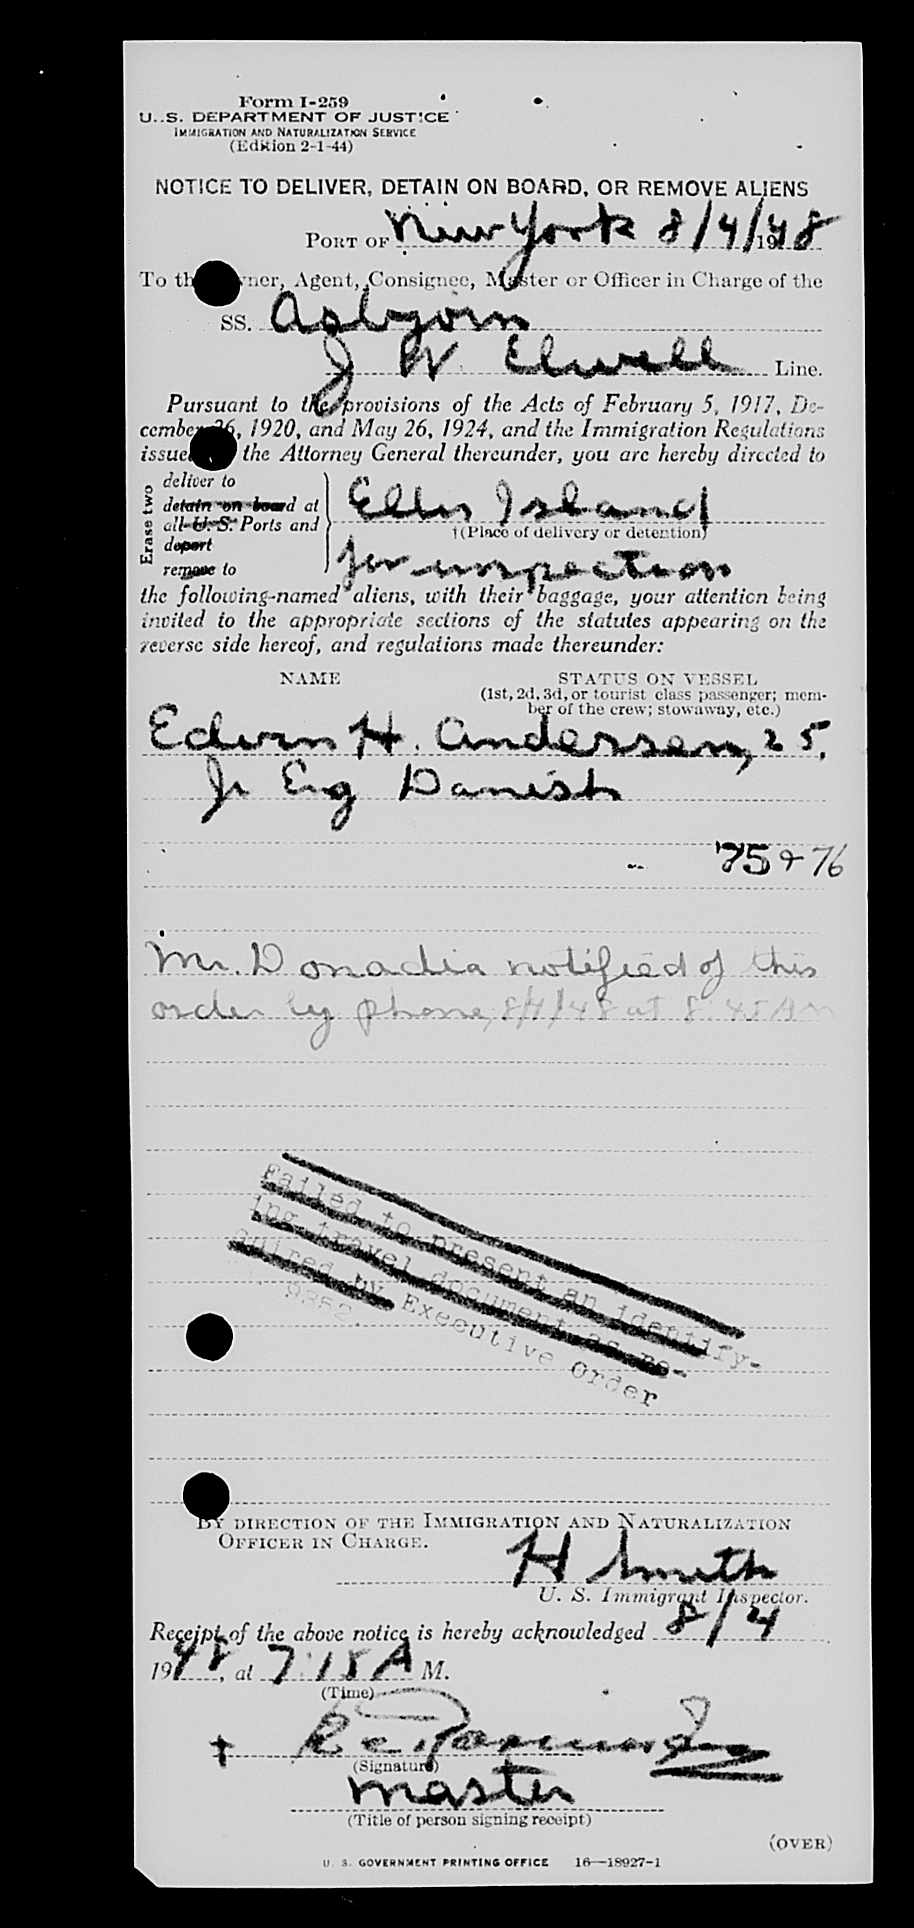 Form I-259
U. S. DEPARTMENT OF JUSTICE
IMMIGRATION AND NATURALIZATION SERVICE
(Edition 2-1-44)
NOTICE TO DELIVER, DETAIN ON BOARD, OR REMOVE ALIENS
PORT OF New York 8/4/1948
To the Owner, Agent, Consignee, Master or Officer in Charge of the
SS. Asbjorn
J W. Elwell Line.
Pursuant to the provisions of the Acts of February 5, 1917, De-
cember 26, 1920, and May 26, 1924, and the Immigration Regulations
issued by the Attorney General thereunder, you are hereby directed to
Erase two
deliver to
detain on board at
all U. S. Ports and
deport
remove to
Ellis Island
†(Place of delivery or detention)
for inspection
the following-named aliens, with their baggage, your attention being
invited to the appropriate sections of the statutes appearing on the
reverse side hereof, and regulations made thereunder:
NAME STATUS ON VESSEL
(1st, 2d, 3d, or tourist class passenger; mem-
ber of the crew; stowaway, etc.)
Edwin H. Andersen, 25,
Jr Eng Danish
75 & 76
Mr. Donadia notified of this
order by phone, 8/4/48 at 8:45 AM
Failed to present an identify-
ing travel document as re-
quired by Executive Order
9352.
BY DIRECTION OF THE IMMIGRATION AND NATURALIZATION
OFFICER IN CHARGE.
H Smith
U. S. Immigrant Inspector.
Receipt of the above notice is hereby acknowledged 8/4
1948, at 7:15 A M.
(Time)
(Signature)
Master
(Title of person signing receipt)
(OVER)
U. S. GOVERNMENT PRINTING OFFICE 16—18927-1